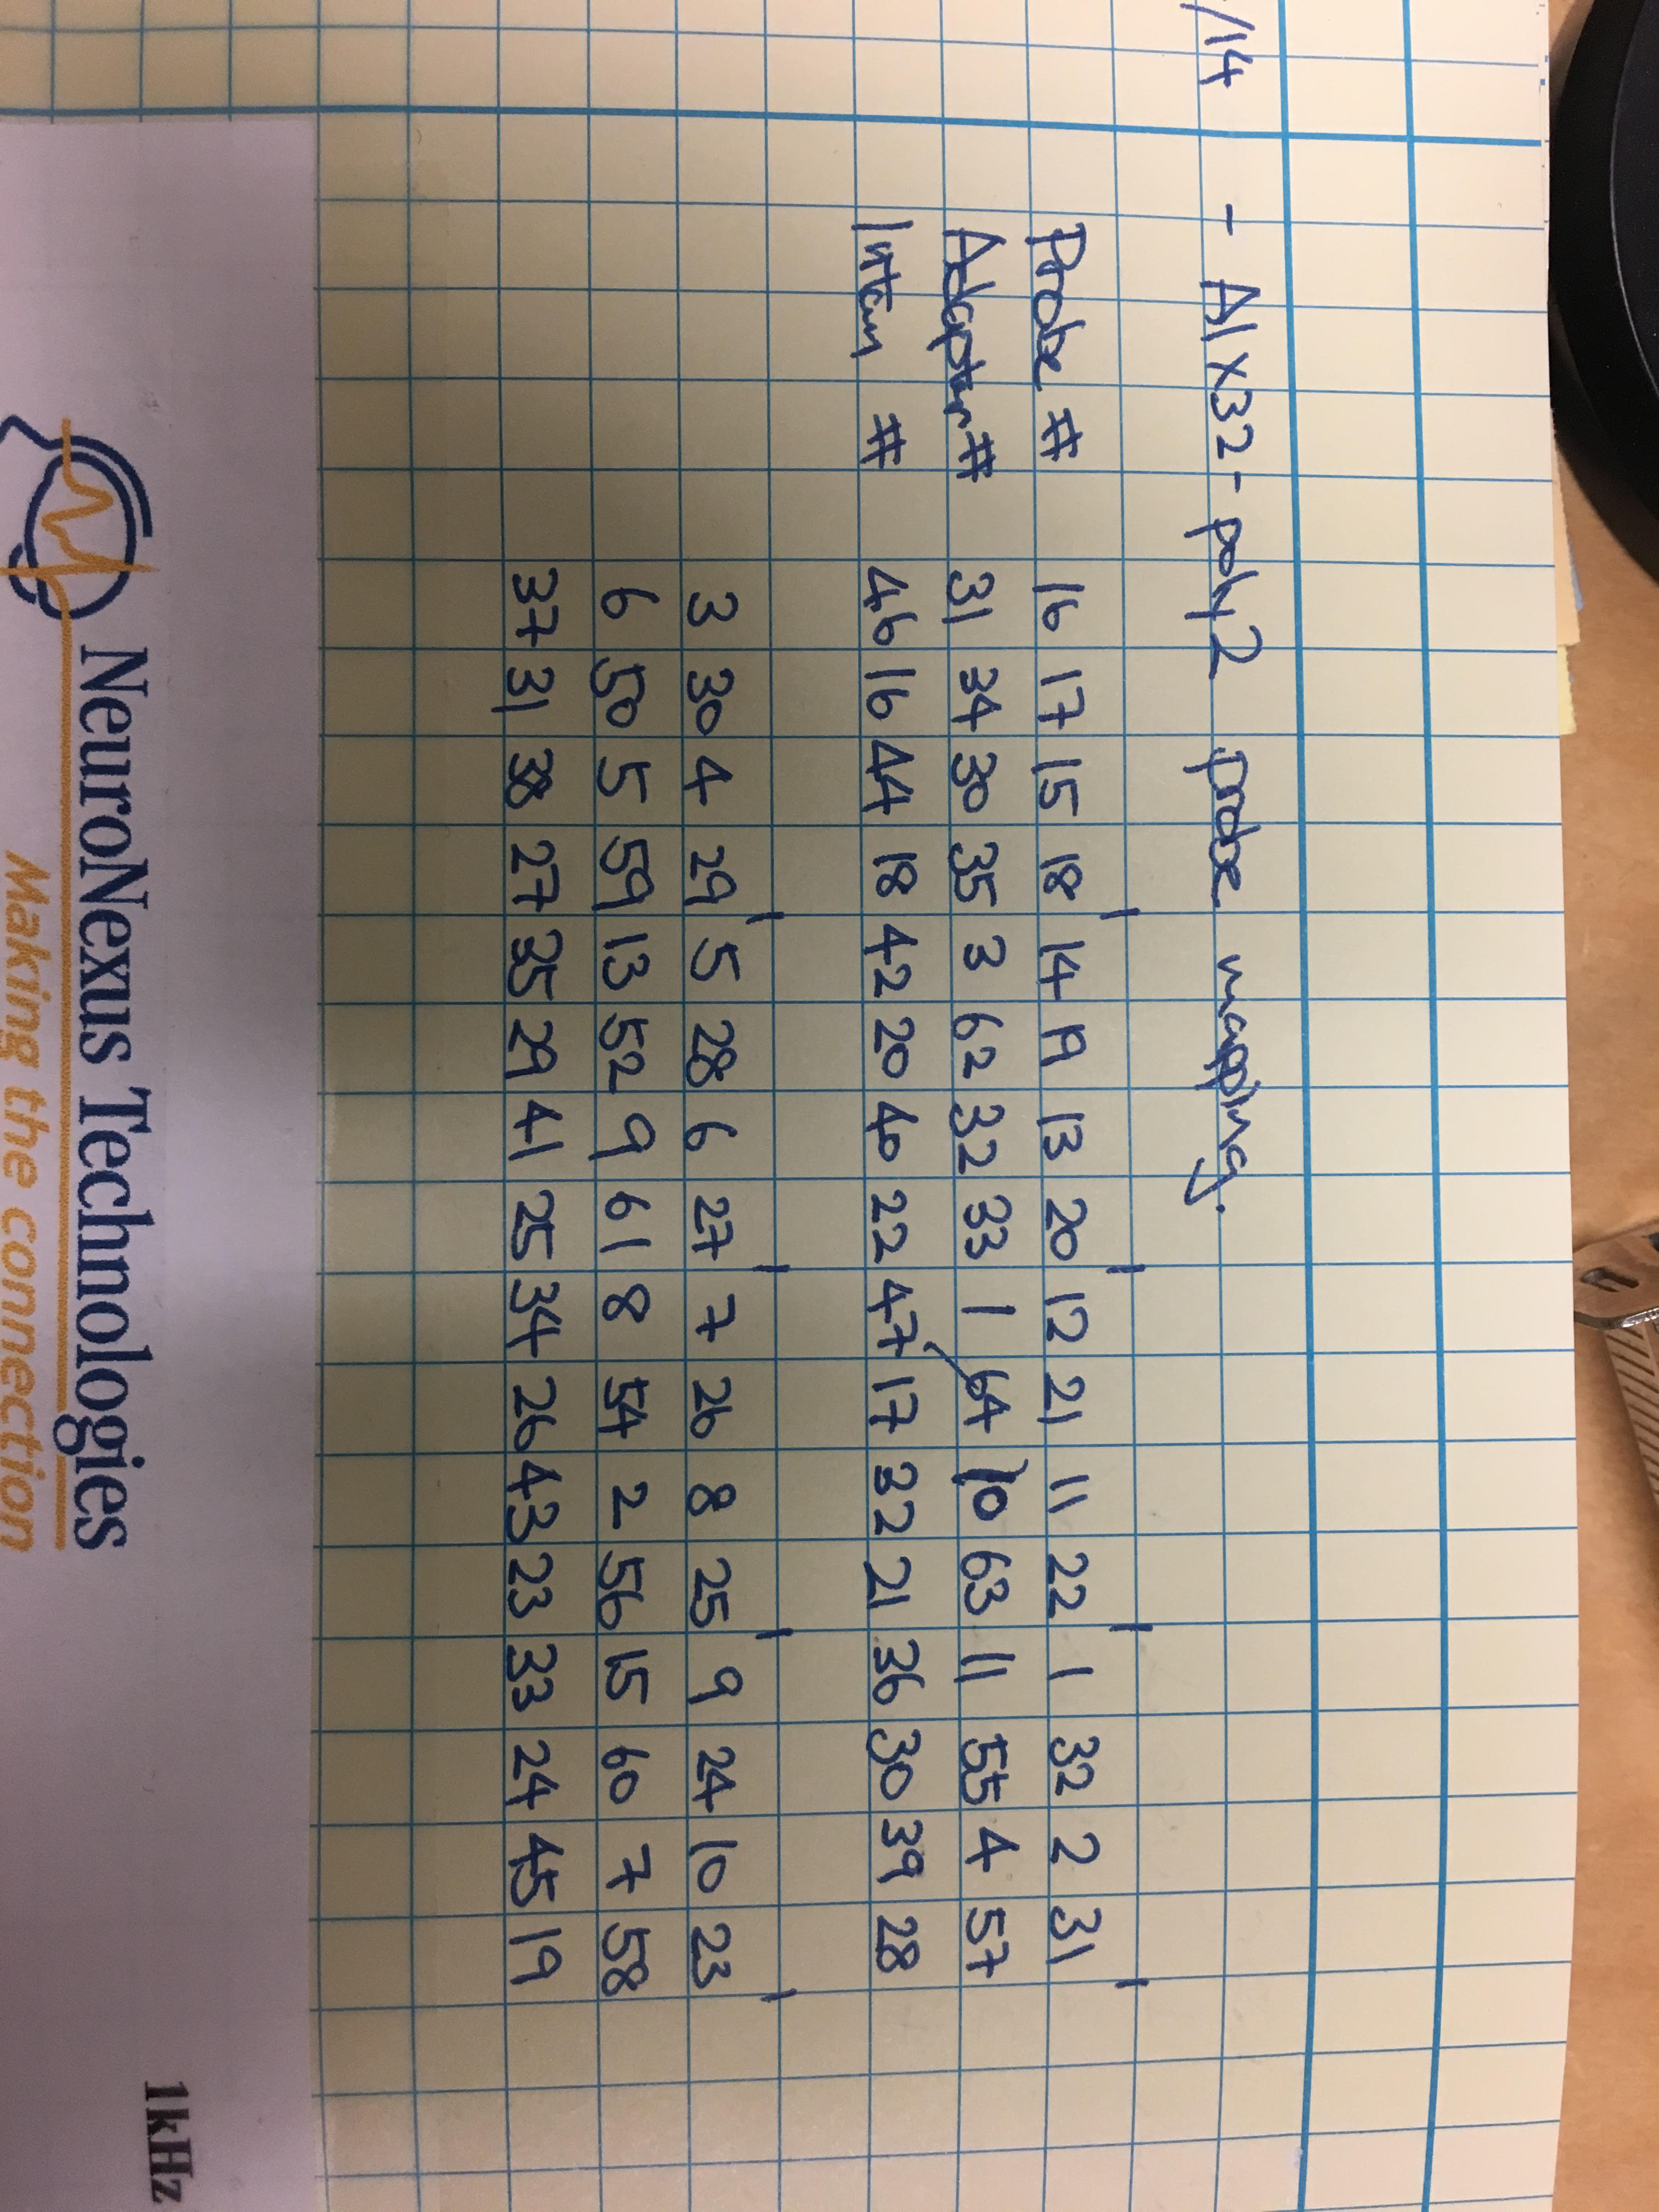 /14 - A1x32-poly2 probe mapping.
Probe # 16 17 15 18 14 19 13 20 12 21 11 22 1 32 2 31
Adapter# 31 34 30 35 3 62 32 33 1 64 10 63 11 55 4 57
Intan # 46 16 44 18 42 20 40 22 47 17 32 21 36 30 39 28
3 30 4 29 5 28 6 27 7 26 8 25 9 24 10 23
6 50 5 59 13 52 9 61 8 54 2 56 15 60 7 58
37 31 38 27 35 29 41 25 34 26 43 23 33 24 45 19
NeuroNexus Technologies
Making the connection
1kHz